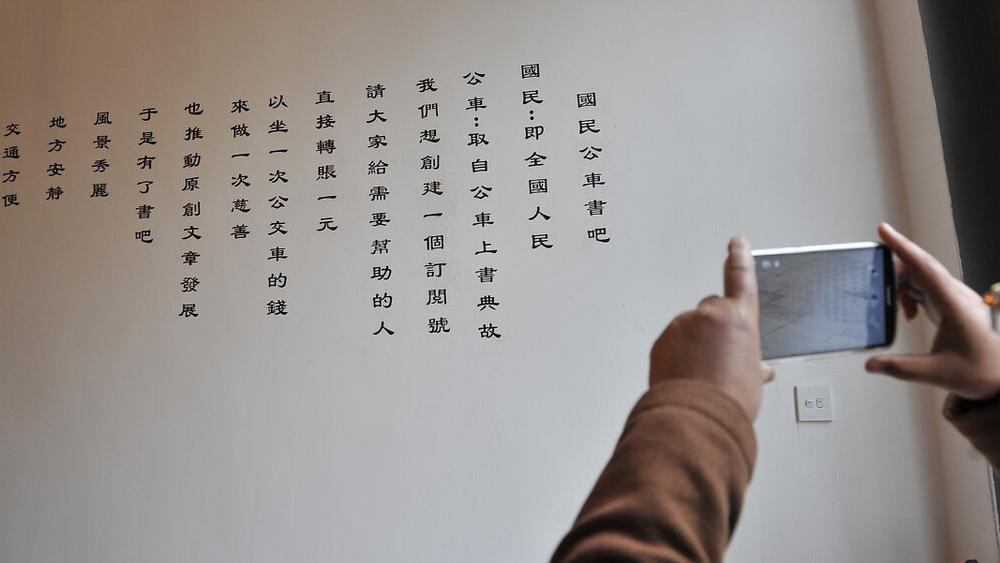 國民公車書吧
國民：即全國人民
公車：取自公車上書典故
我們想創建一個訂閱號
請大家給需要幫助的人
直接轉賬一元
以坐一次公交車的錢
來做一次慈善
也推動原創文章發展
于是有了書吧
風景秀麗
地方安静
交通方便